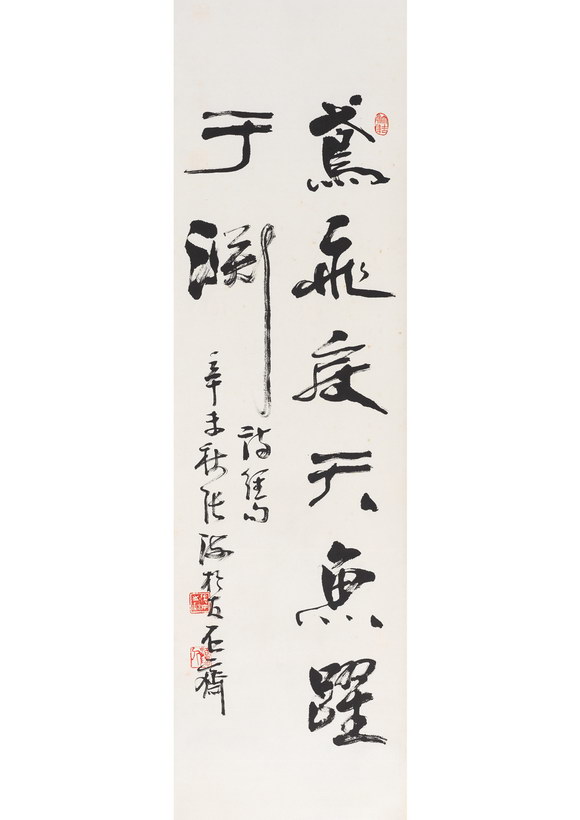 鳶飛戾天魚躍
于淵
詩經句
辛未秋張海於友石齋